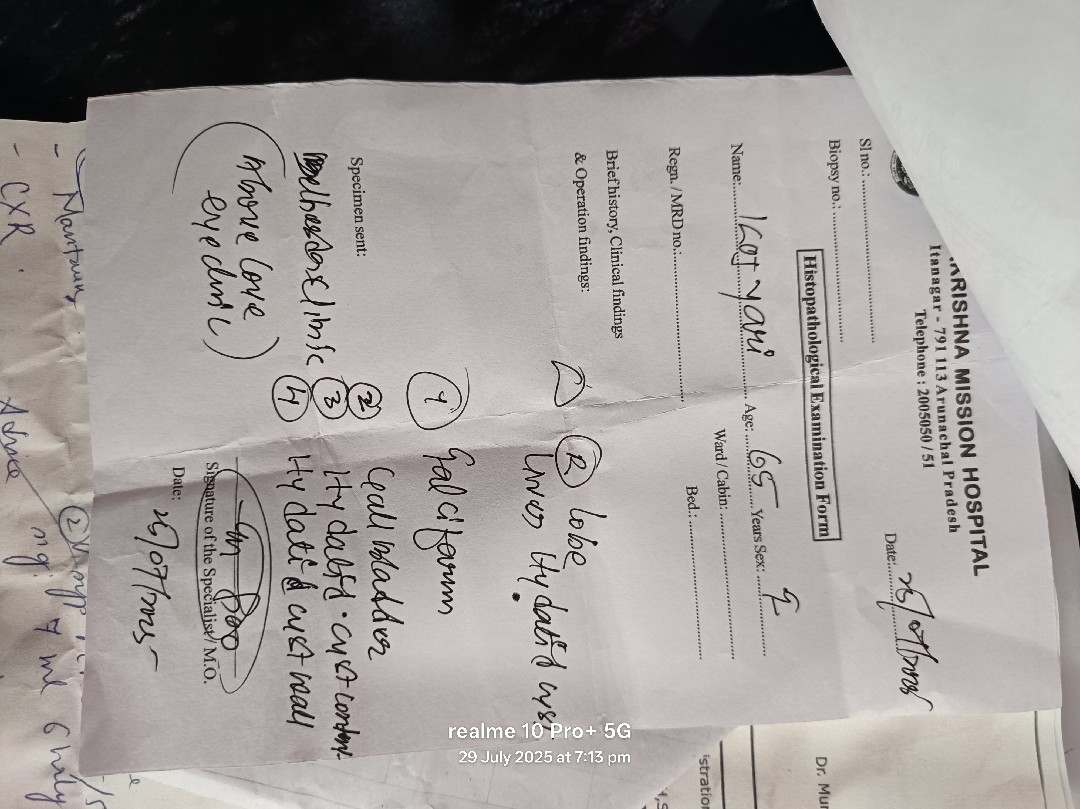 KRISHNA MISSION HOSPITAL
Itanagar - 791 113 Arunachal Pradesh
Telephone : 2005050 / 51
Sl no.:
Date:
Biopsy no.:
Histopathological Examination Form
Name: Age: 65 Years Sex: ♀
Ward / Cabin:
Regn. / MRD no.:
Bed.:
Brief history, Clinical findings
& Operation findings:
R lobe
Liver Hydatid cyst
1 Falciform
Specimen sent:
2 Gall bladder
3 Hydatid cyst content
4 Hydatid cyst wall
(Above Love
eye clinic)
Signature of the Specialist / M.O.
Date:
- CXR
mg
7 ml 6 hrly
istration
Dr. Mur
realme 10 Pro+ 5G
29 July 2025 at 7:13 pm